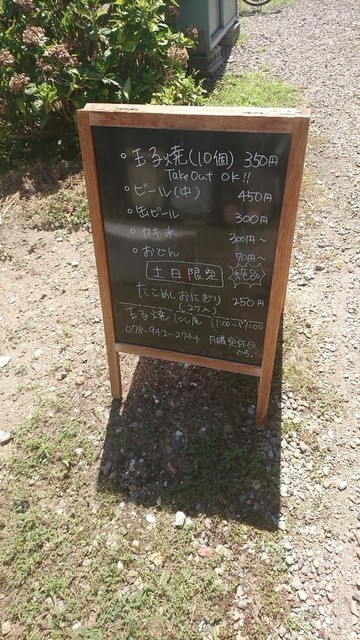 ・玉子焼(10個) 350円
Take Out OK!!
・ビール(中) 450円
・缶ビール 300円
・カキ氷 300円~
・おでん 70円~
土日限定 絶品
たこめしおにぎり 250円
(2ケ入)
玉子焼 にし尾 11:00~17:00
078-942-2744 月曜定休日